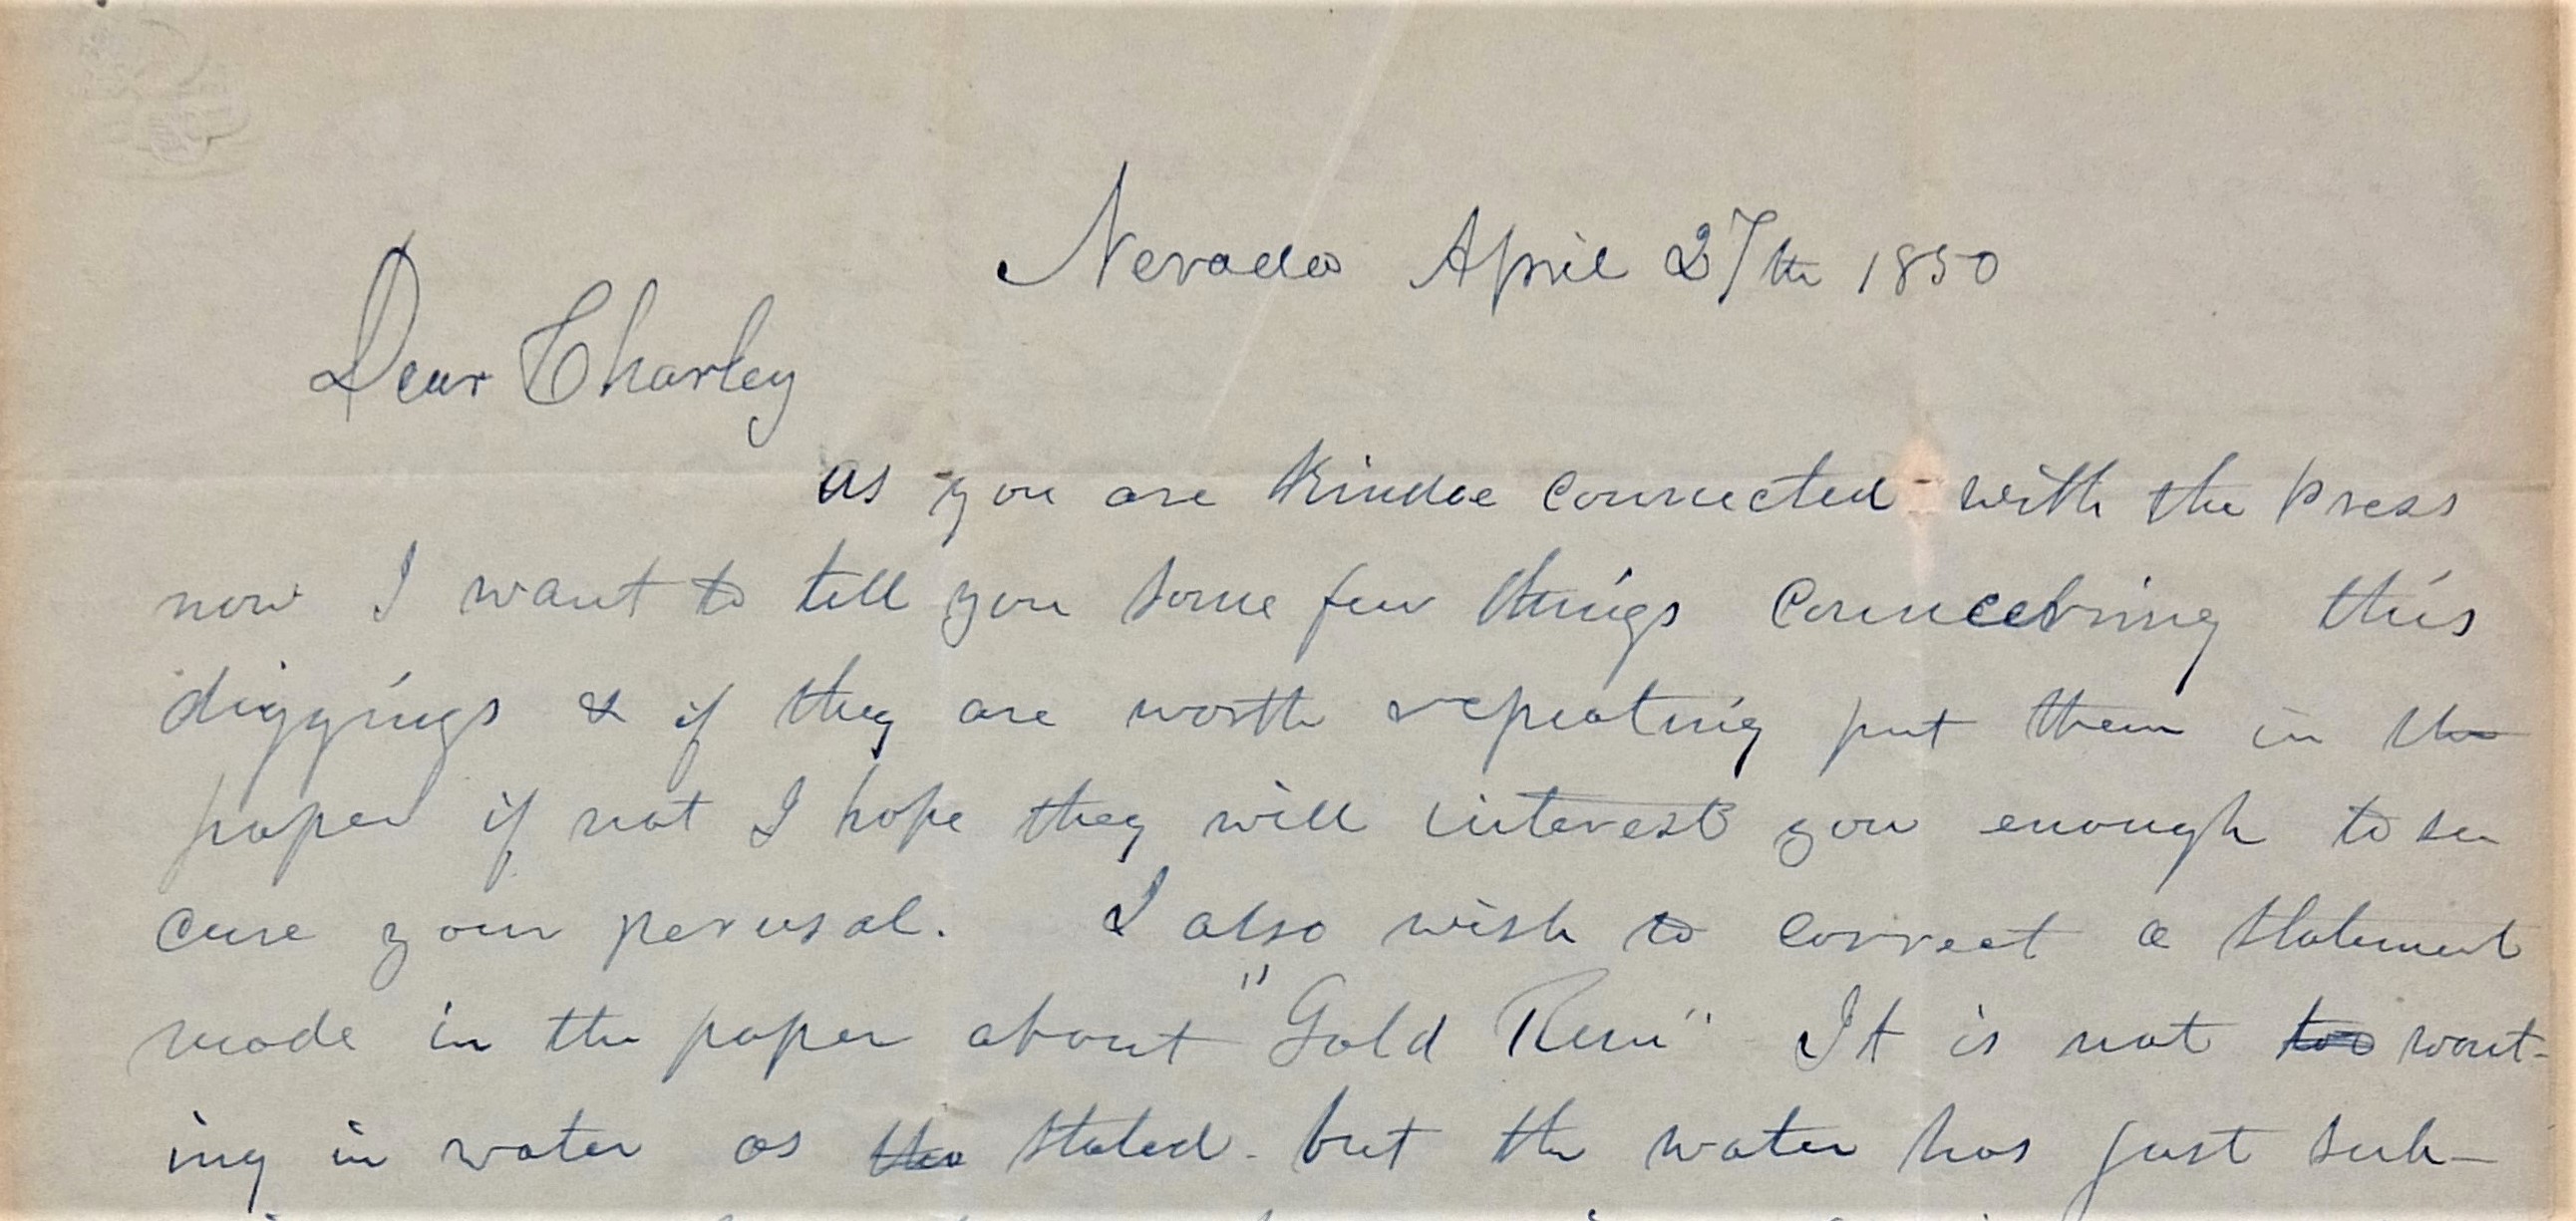 Nevada April 27th 1850
Dear Charley
as you are kindoe connected with the press
now I want to tell you some few things conncerning this
diggings & if they are worth repeating put them in the
paper if not I hope they will interest you enough to se
cure your perusal. I also wish to correct a statement
made in the paper about "Gold Run" It is not too want-
ing in water as the stated - but the water has just sub-